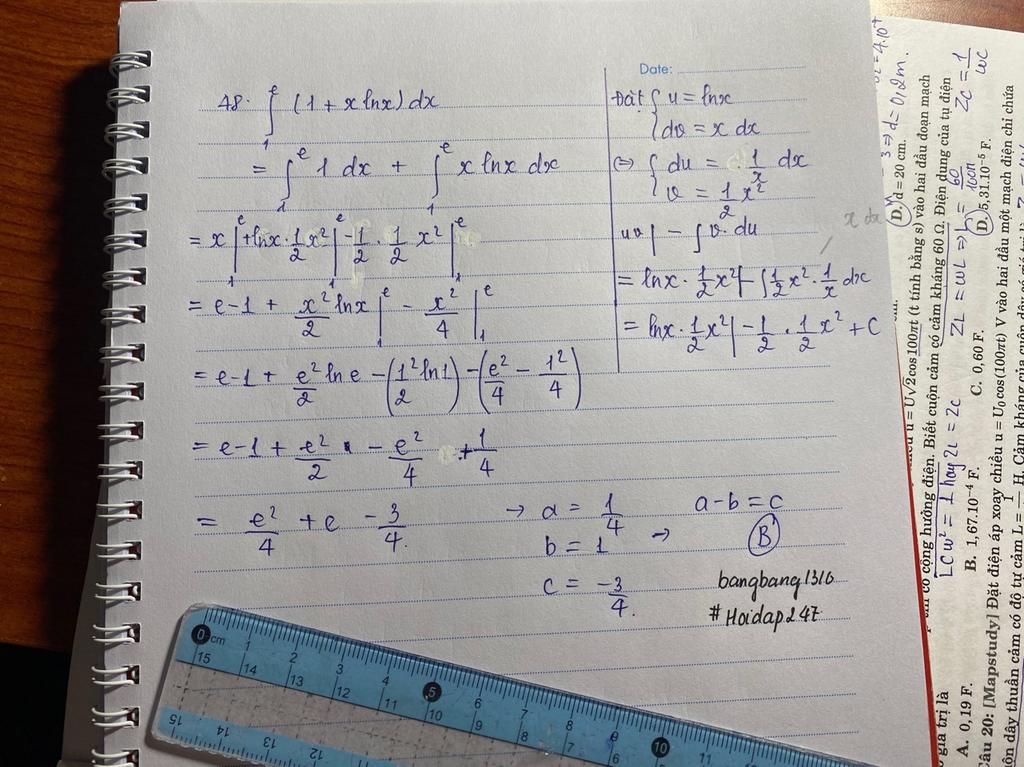 48. ∫₁ᵉ (1 + x lnx) dx
= ∫₁ᵉ 1 dx + ∫₁ᵉ x lnx dx
= x |₁ᵉ + lnx · 1/2 x² |₁ᵉ - 1/2 · 1/2 x² |₁ᵉ
= e-1 + x²/2 lnx |₁ᵉ - x²/4 |₁ᵉ
= e-1 + e²/2 ln e - (1²/2 ln1) - (e²/4 - 1²/4)
= e-1 + e²/2 - e²/4 + 1/4
= e²/4 + e - 3/4.
→ a = 1/4
b = 1
c = -3/4.
→ a-b = c
(B)
bangbang1316
#Hoidap247
Date:
Đặt { u = lnx
{ dv = x dx
⇔ { du = 1/x dx
{ v = 1/2 x²
uv | - ∫ v. du
= lnx · 1/2 x² | - ∫ 1/2 x² · 1/x dx
= lnx · 1/2 x² | - 1/2 · 1/2 x² + C
x dx
3 => d = 0,2m.
D. d = 20 cm.
u = U√2 cos100πt (t tính bằng s) vào hai đầu đoạn mạch
có cộng hưởng điện. Biết cuộn cảm có cảm kháng 60 Ω. Điện dung của tụ điện
LCω² = 1 hay ZL = ZC
ZL = ωL => L = 60/100π
ZC = 1/ωC
giá trị là
A. 0,19 F.
B. 1,67.10⁻⁴ F.
C. 0,60 F.
D. 5,31.10⁻⁵ F.
Câu 20: [Mapstudy] Đặt điện áp xoay chiều u = U₀cos(100πt) V vào hai đầu một mạch điện chỉ chứa
cuộn dây thuần cảm có độ tự cảm L = 1/ H. Cảm kháng của cuộn dây có giá trị là
0 cm 1 2 3 4 5 6 7 8 9 10 11
15 14 13 12 11 10 9 8 7 6 5
15 14 13 12